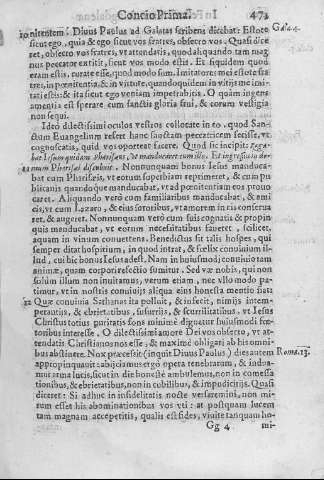 Concio Prima. 471
10 nitentem: Diuus Paulus ad Galatas scribens dicebat: Estote Gala.4.
sicut ego, quia & ego sicut vos fratres, obsecro vos. Quasi dice
ret, obsecro vos fratres, vt attendatis, quod quando tam mag
nus peccator extitit, sicut vos modo estis. Et siquidem quod
eram estis, curate esse, quod modo sum. Imitatores mei estote fra
tres, in pœnitentia, & in virtute, quandoquidem in vitijs me imi-
tati estis: & ita sicut ego veniam impetrabitis. O quam ingens
amentia est sperare cum sanctis gloria frui, & eorum vestigia
non sequi.
Ideò dilectissimi oculos vestros collocate in eo, quod San-
ctum Euangelium refert hanc sanctam peccatricem fecisse, vt
cognoscatis, quid vos oporteat facere. Quod sic incipit: Roga-
bat Iesum quidam Pharisæus, vt manducaret cum illo. Et ingressus do-
11 mum Pharisæi discubuit. Nonnunquam bonus Iesus manduca-
bat cum Pharisæis, vt eorum superbiam reprimeret, & cum pu
blicanis quandoque manducabat, vt ad pœnitentiam eos prouo
caret. Aliquando verò cum familiaribus manducabat, & ami
cis, vt cum Lazaro, & eius sororibus, vt amorem in eis conserua
ret, & augeret. Nonnunquam verò cum suis cognatis & propin
quis manducabat, vt eorum necessitatibus faueret, scilicet,
aquam in vinum conuertens. Benedictus sit talis hospes, qui
semper ditat hospitium, in quod intrat, & fœlix conuiuium il-
lud, cui hic bonus Iesus adest. Nam in huiusmodi conuiuio tam
animæ, quam corpori refectio sumitur. Sed væ nobis, qui non
solùm illum non inuitamus, verum etiam, nec vllo modo pa-
timur, vt in nostris conuiuijs aliqua eius honesta mentio fiat.
12 Quæ conuiuia Sathanas ita polluit, & infecit, nimijs intem-
perantijs, & ebrietatibus, susurrijs, & scurrilitatibus, vt Iesus
Christus totius puritatis fons minimè dignetur huiusmodi fœ-
toribus interesse. O dilectissimi amore Dei vos obsecro, vt at-
tendatis Christianos nos esse, & maximè obligari ab his omni-
bus abstinere. Nox præcessit (inquit Diuus Paulus) dies autem Roma.13.
appropinquauit: abijciamus ergo opera tenebrarum, & indua-
mur arma lucis, sicut in die honestè ambulemus, non in comessa
tionibus, & ebrietatibus, non in cubilibus, & impudicitijs. Quasi
diceret: Si adhuc in infidelitatis nocte versaremini, non mi-
rum esset his abominationibus vos vti: at postquam lucem
tam magnam accepistis, qualis est fides, viuite tanquam ho-
Gg 4 mi-